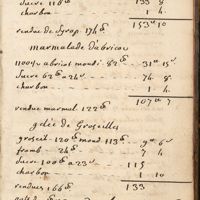 Sucre 118 lb 133 8
charbon 1 4
153 # 10
rendue de Syrop 174 lb
marmalade d'abricos
100 lb abricot mondé 82 lb 31 # 15 s
Sucre 62 lb a 24 s 74 8
charbon 1 4
107 # 7
rendue marmel 122 lb
gelée de Groseilles
groseil 120 lb mond 113 lb 9 # 6 s
framb 24 lb 7 4
Sucre 100 lb a 23 s 115
charbon 1 10
rendues 166 lb 133